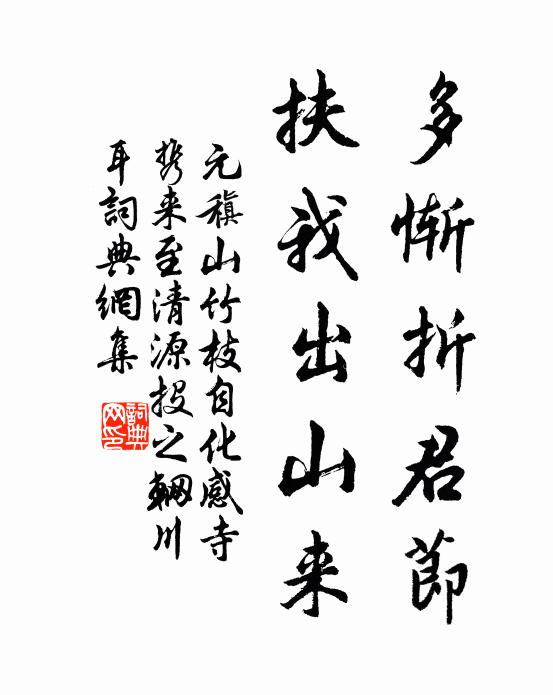 多慚折君節
扶我出山来
元稹山竹枝自化感寺
携来至清源投之輞川
耳詞典網集
詞典
网印